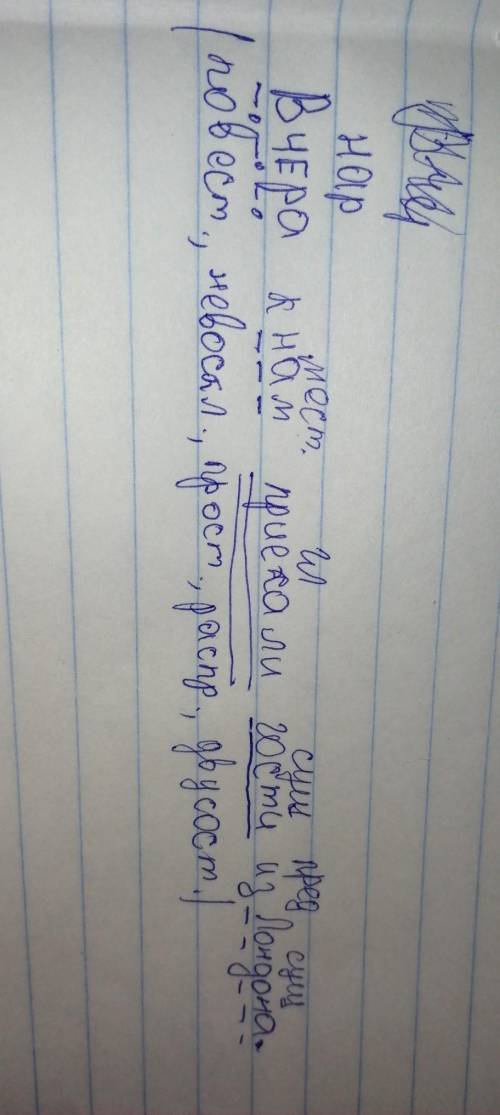 нар мест. гл сущ пред сущ
Вчера к нам приехали гости из Лондона.
(повест., невоскл., прост., распр, двусост.)